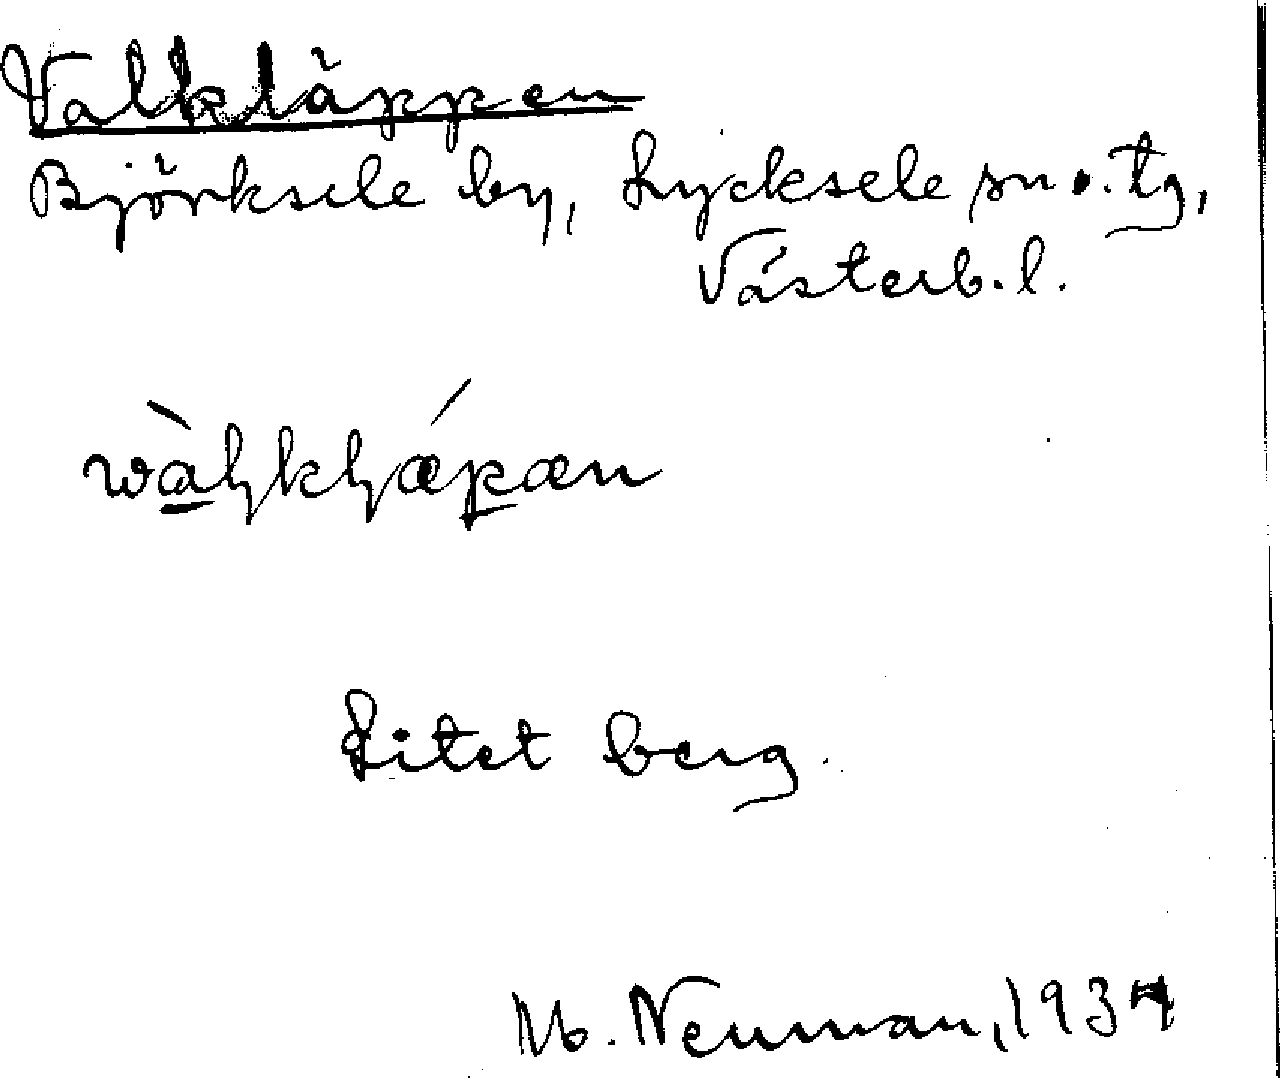 Valkläppen
Björksele by, Lycksele sn o. tg,
Västerb. l.
Litet berg.
M. Neuman, 1934